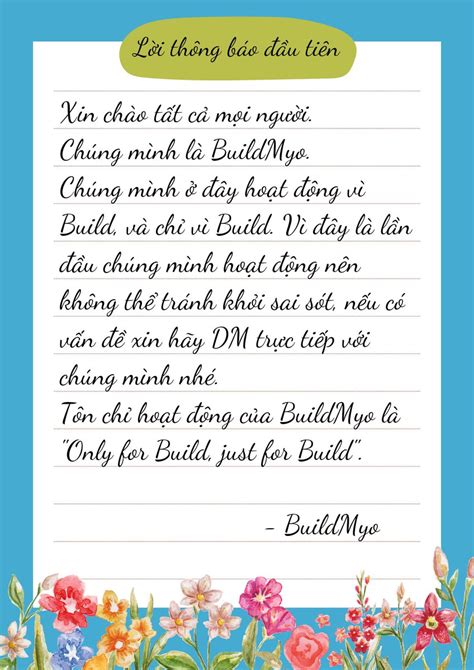 Lời thông báo đầu tiên
Xin chào tất cả mọi người.
Chúng mình là BuildMyo.
Chúng mình ở đây hoạt động vì
Build, và chỉ vì Build. Vì đây là lần
đầu chúng mình hoạt động nên
không thể tránh khỏi sai sót, nếu có
vấn đề xin hãy DM trực tiếp với
chúng mình nhé.
Tôn chỉ hoạt động của BuildMyo là
"Only for Build, just for Build".
- BuildMyo